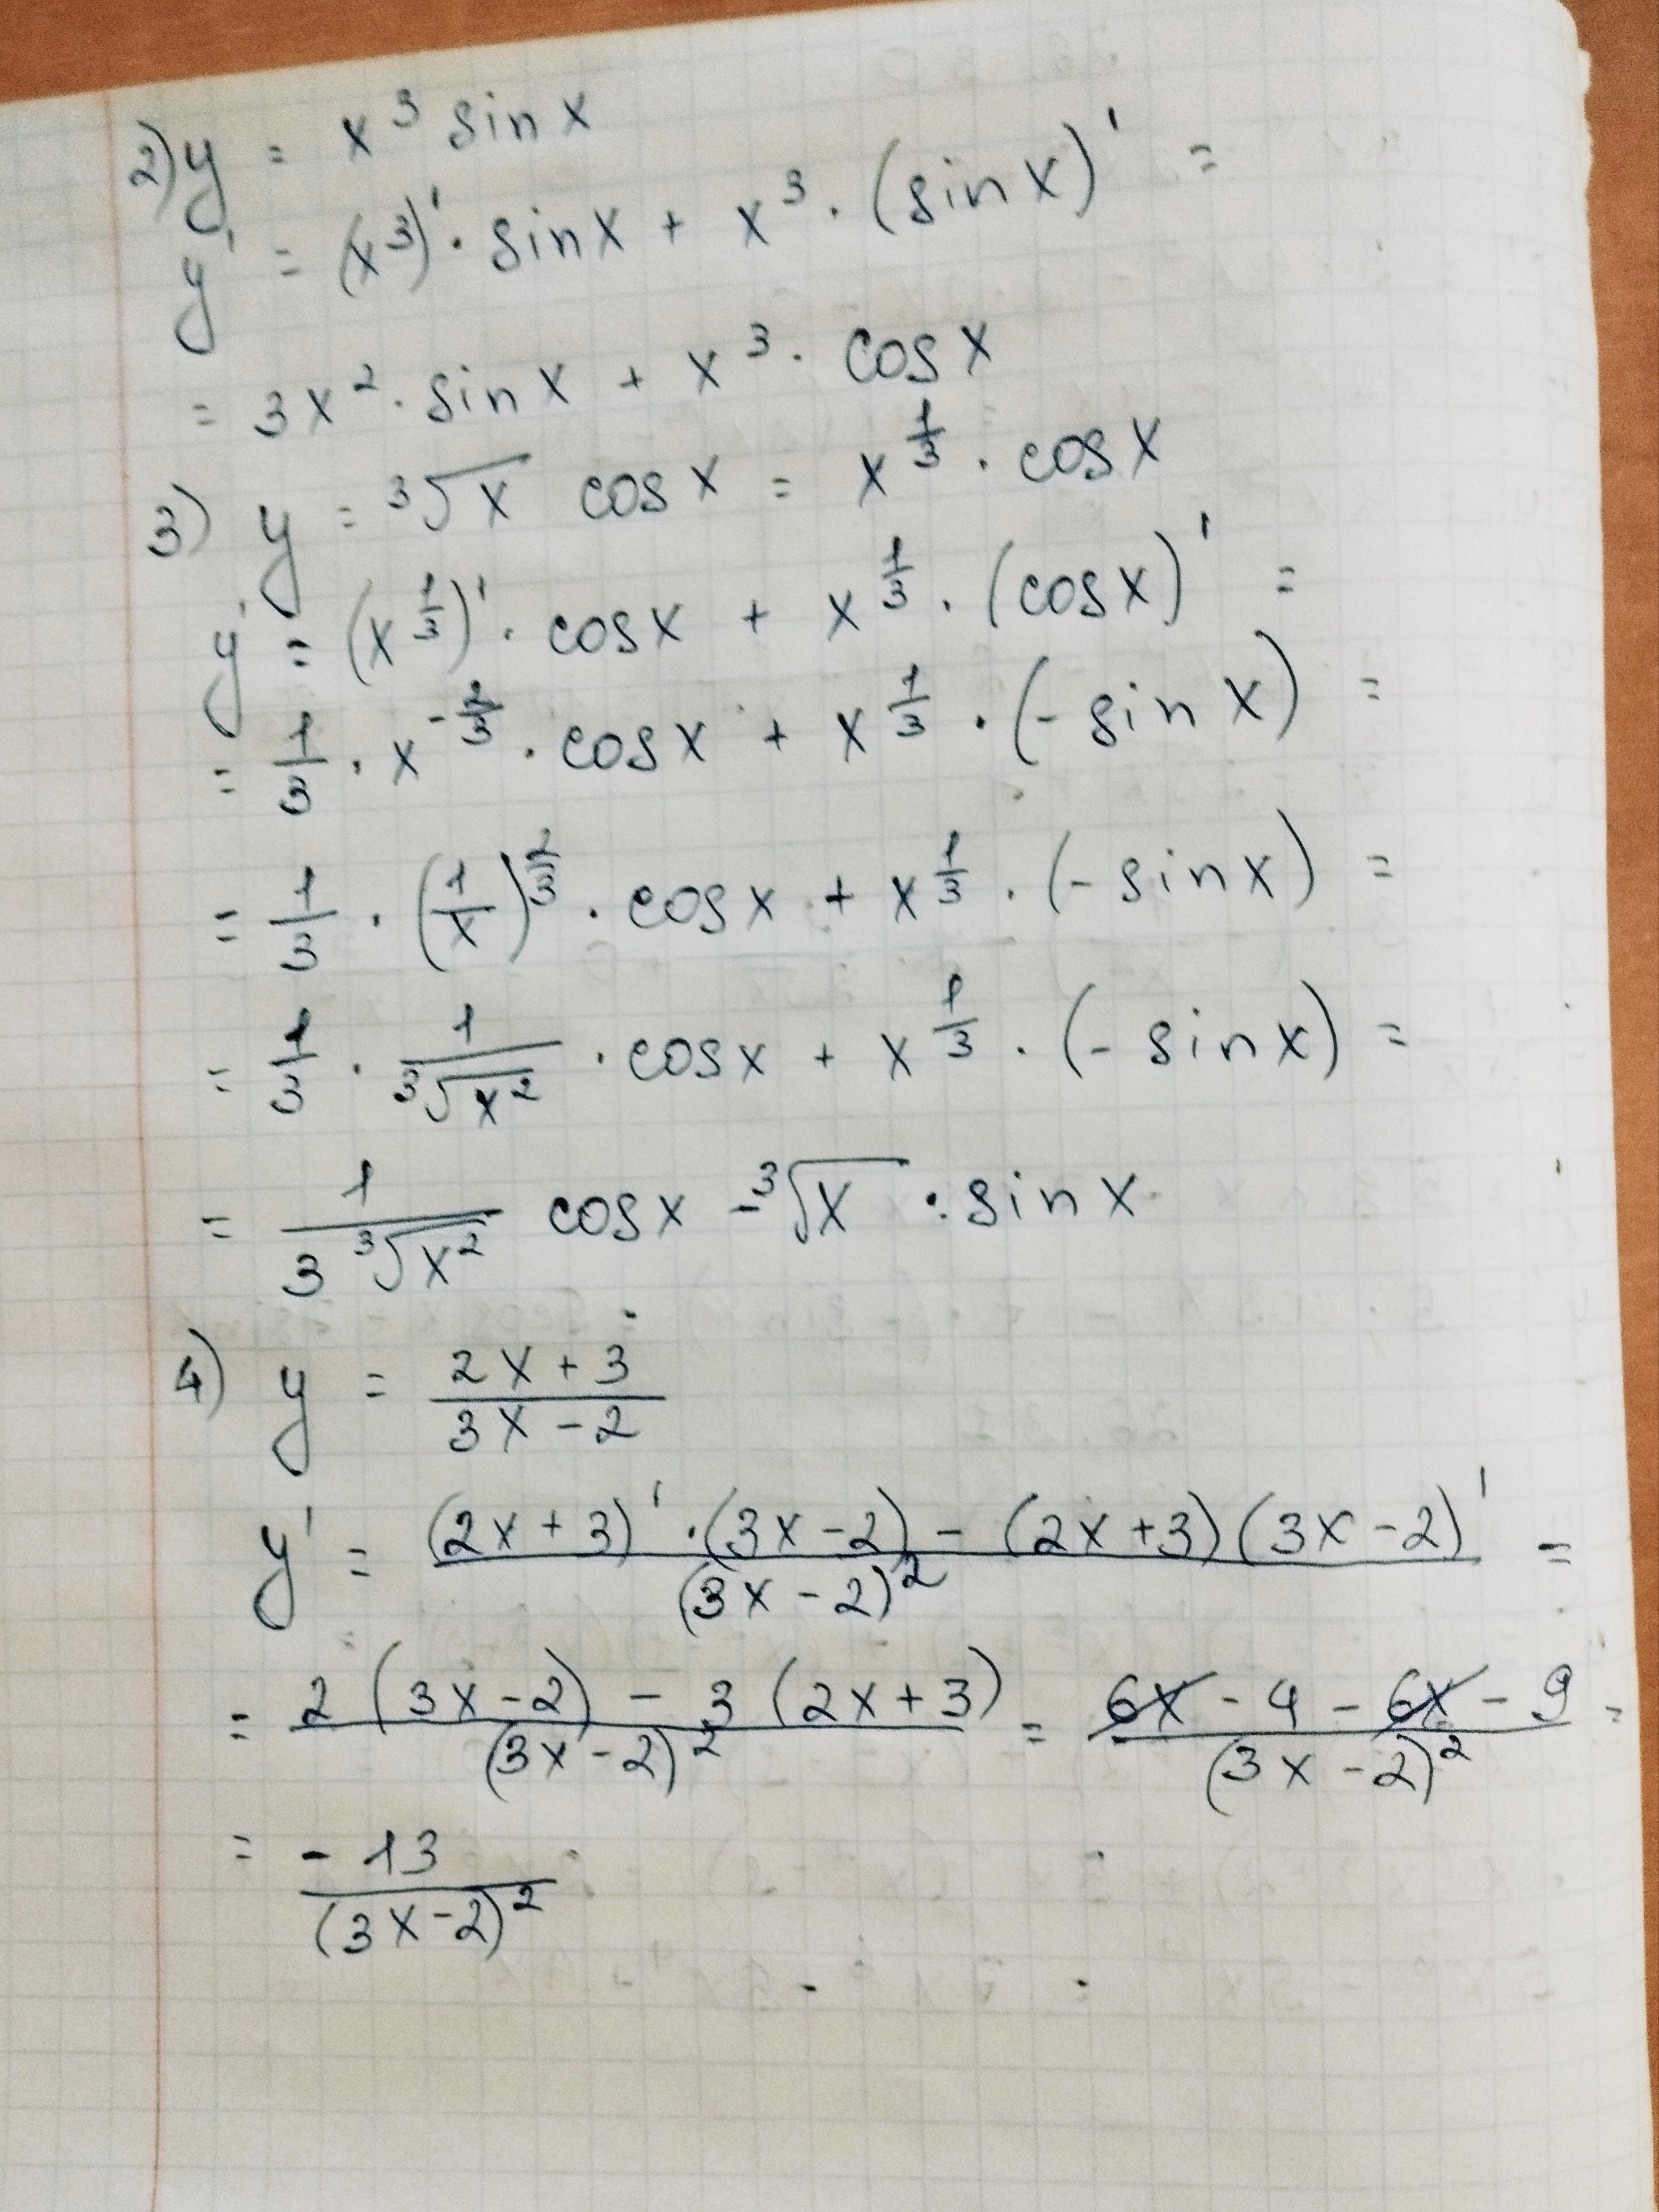 2) y = x³ sin x
y' = (x³)' · sin x + x³ · (sin x)' =
= 3x² · sin x + x³ · cos x
3) y = ∛x cos x = x^(1/3) · cos x
y' = (x^(1/3))' · cos x + x^(1/3) · (cos x)' =
= 1/3 · x^(-2/3) · cos x + x^(1/3) · (- sin x) =
= 1/3 · (1/x)^(2/3) · cos x + x^(1/3) · (- sin x) =
= 1/3 · 1/∛(x²) · cos x + x^(1/3) · (- sin x) =
= 1/(3 ∛(x²)) cos x - ∛x · sin x
4) y = (2x + 3)/(3x - 2)
y' = ((2x + 3)' · (3x - 2) - (2x + 3)(3x - 2)')/(3x - 2)² =
= (2(3x - 2) - 3(2x + 3))/(3x - 2)² = (6x - 4 - 6x - 9)/(3x - 2)² =
= -13/(3x - 2)²